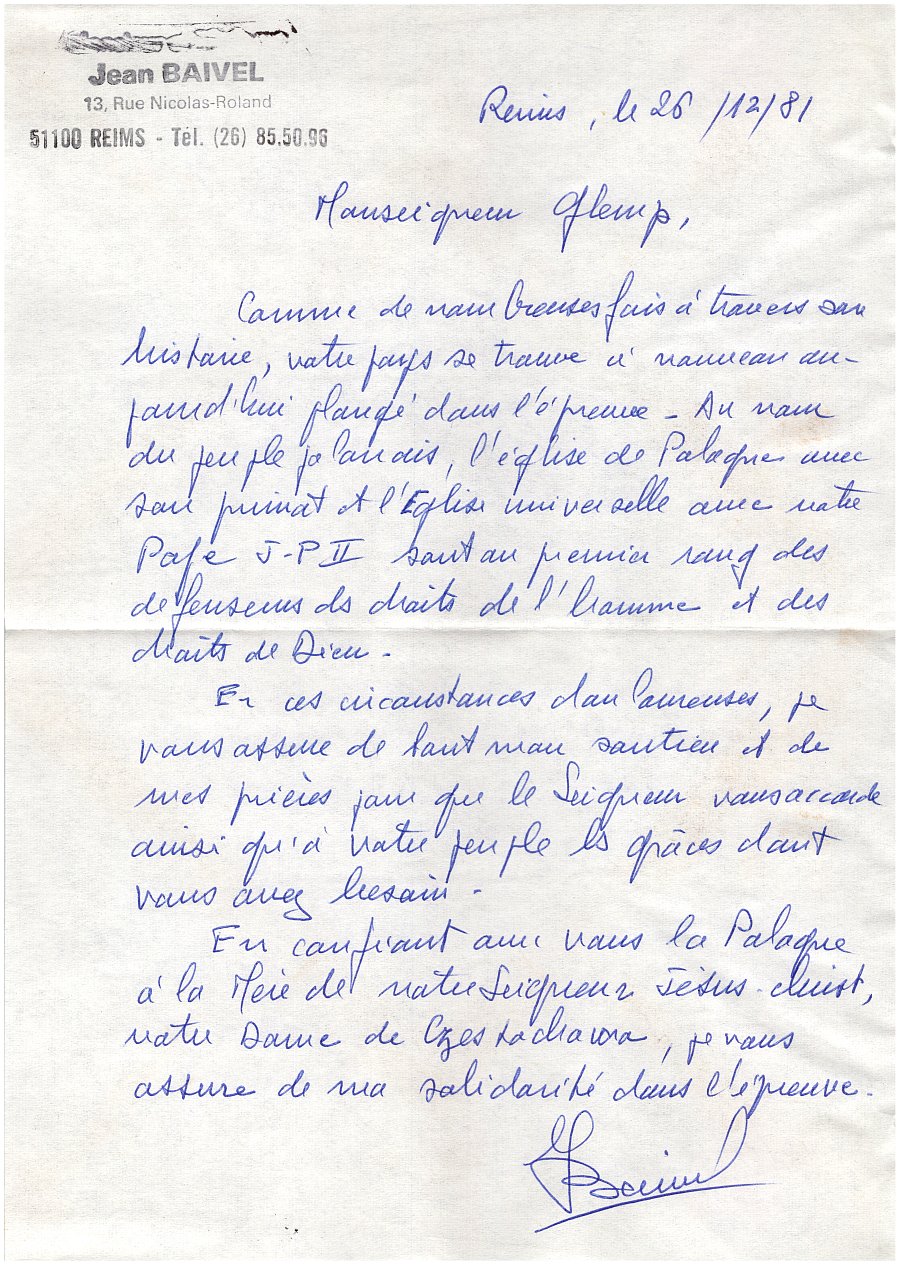 Jean BAIVEL
13, Rue Nicolas-Roland
51100 REIMS - Tél. (26) 85.50.96
Reims, le 26/12/81
Monseigneur Glemp,
Comme de nombreuses fois à travers son
histoire, votre pays se trouve à nouveau au-
jourd'hui plongé dans l'épreuve - Au nom
du peuple polonais, l'église de Pologne avec
son primat et l'Eglise universelle avec notre
Pape J-P II sont au premier rang des
defenseurs ds droits de l'homme et des
droits de Dieu -
En ces circonstances douloureuses, je
vous assure de tout mon soutien et de
mes prières pour que le Seigneur vous accorde
ainsi qu'à votre peuple ls grâces dont
vous avez besoin -
En confiant avec vous la Pologne
à la Mère de notre Seigneur Jésus-Christ,
notre Dame de Czestochowa, je vous
assure de ma solidarité dans l'épreuve -
JBaivel